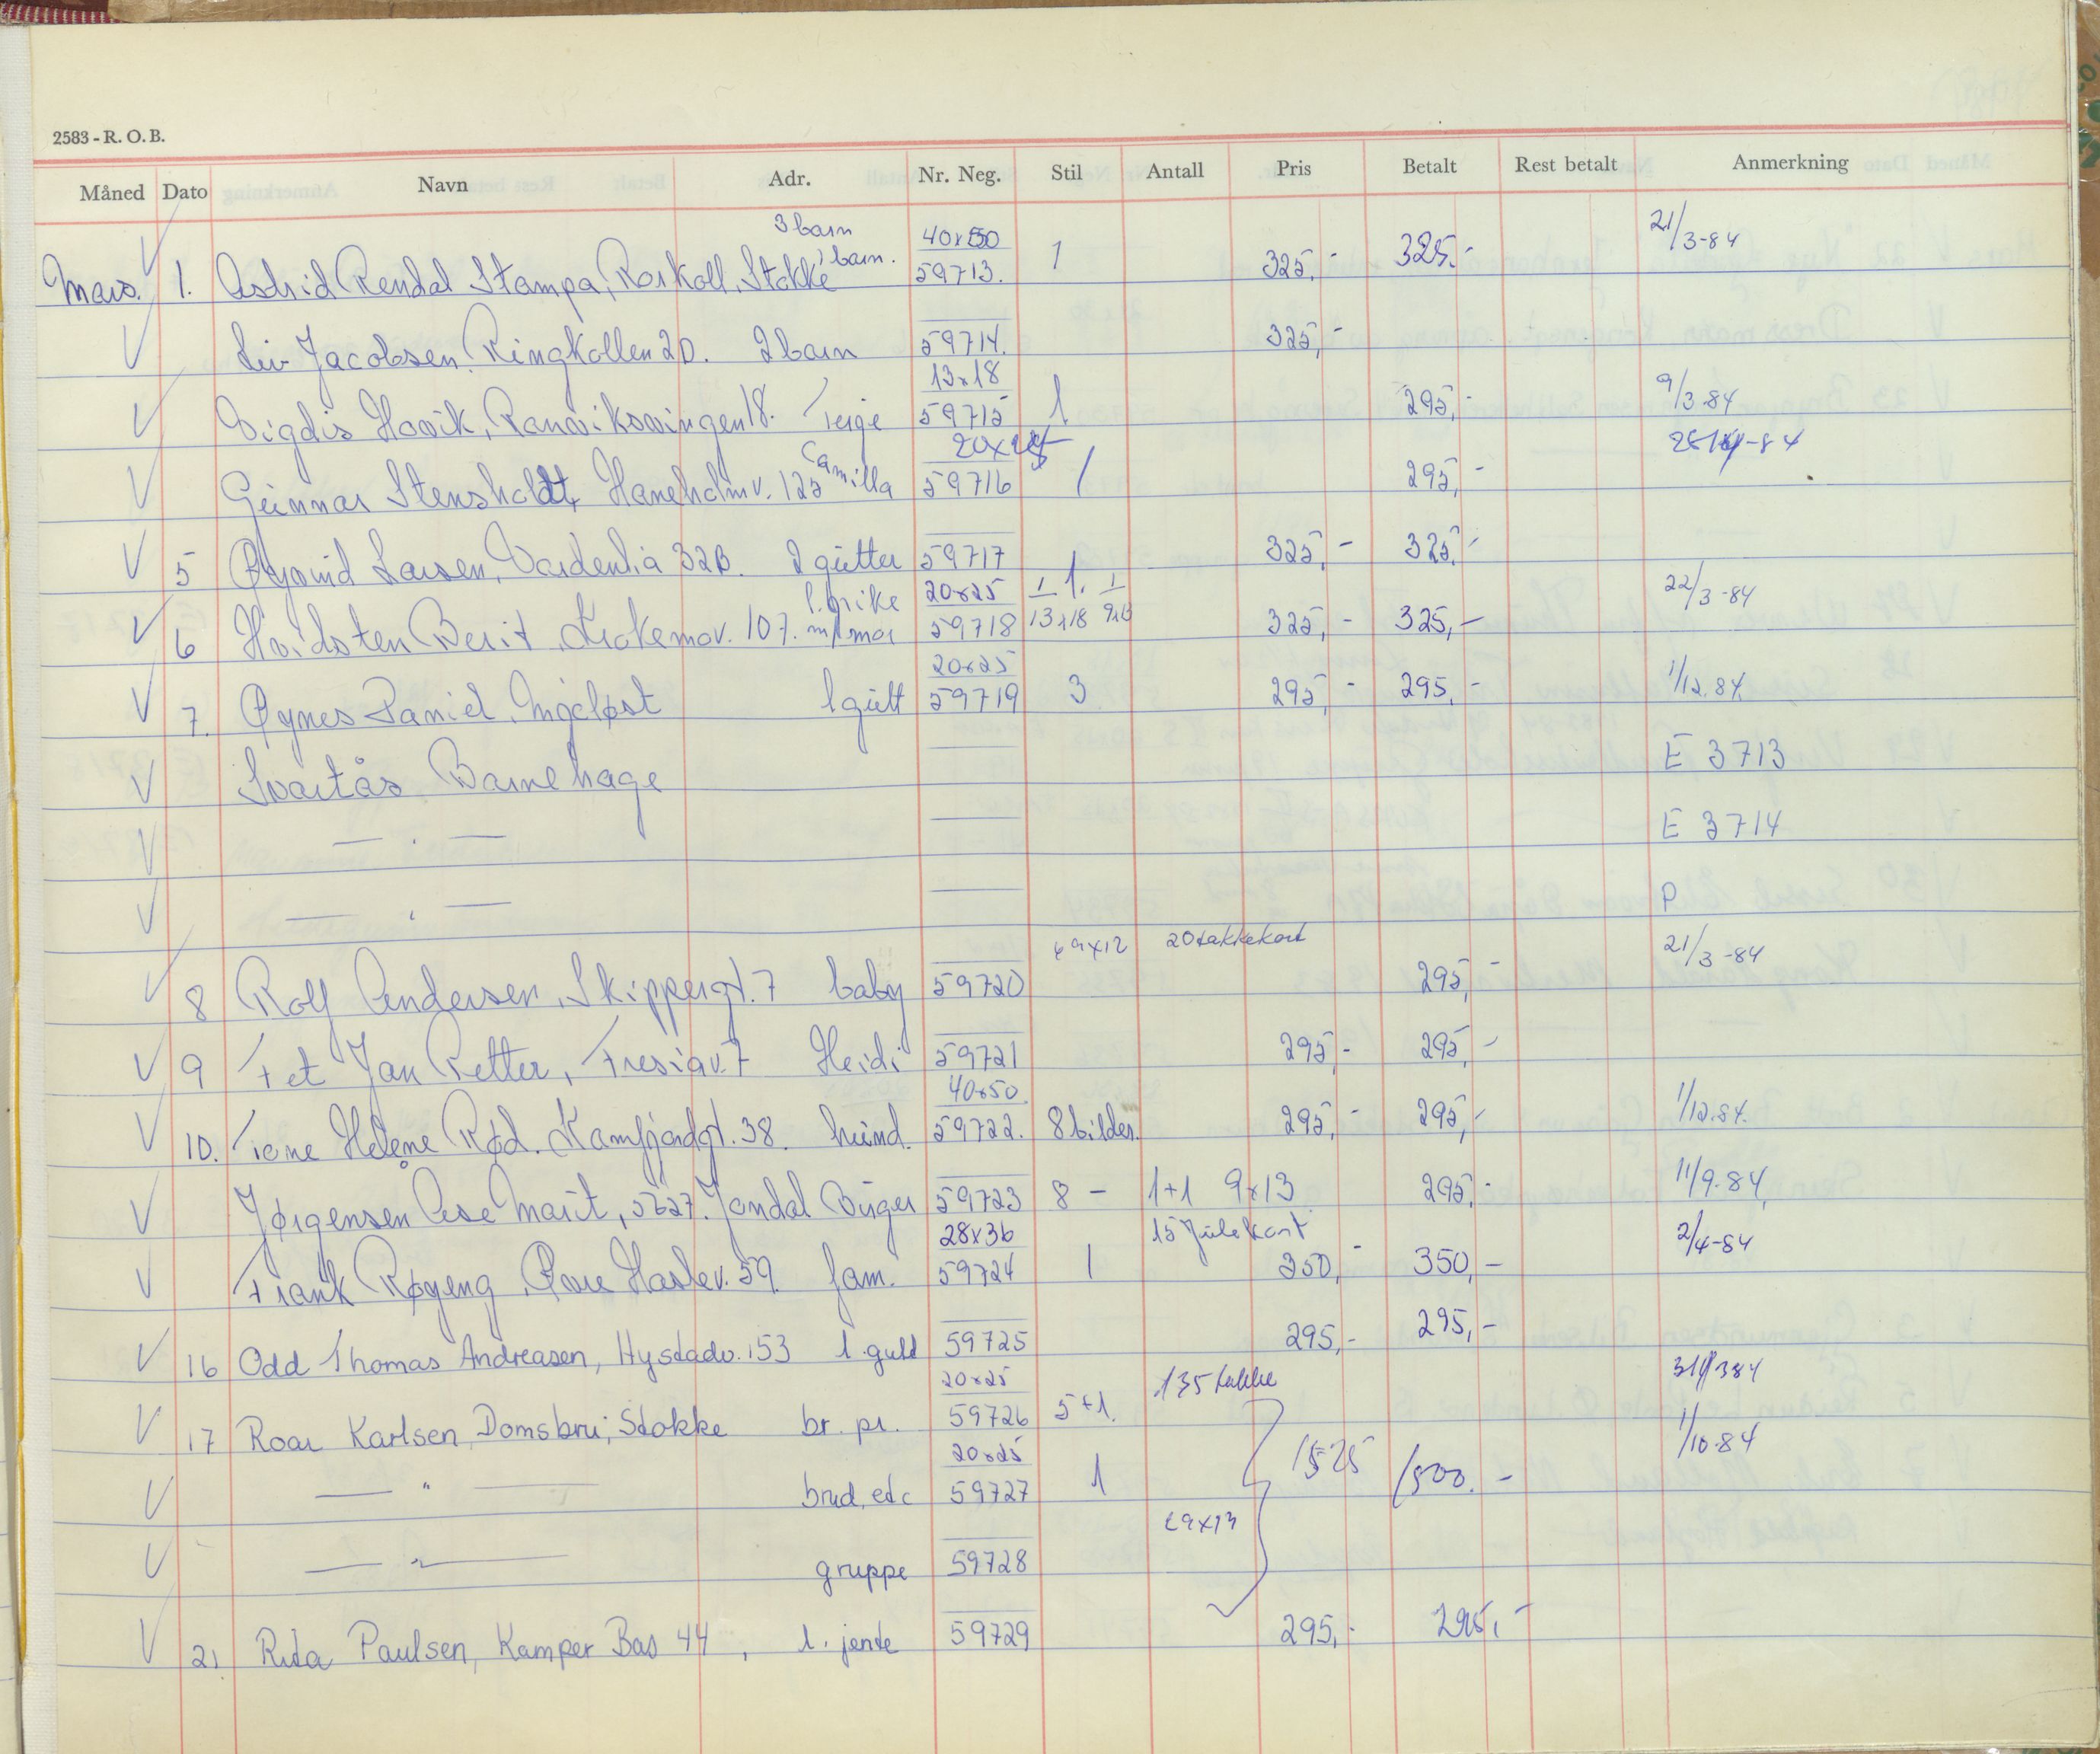 2583 - R. O. B.
Måned Dato Navn Adr. Nr. Neg. Stil Antall Pris Betalt Rest betalt Anmerkning
3 barn 40x50 21/3-84
Mars. 1. Astrid Rendal Stampa, Roskoll, Stokke 1 barn. 59713. 1 325,- 325,-
Liv Jacobsen, Ringkollen 2D. 2 barn 59714. 325,-
13x18 9/3-84
Vigdis Hovik, Ranviksvingen 18. Terje 59715 1 295,-
Camilla 20x25 -84
Gunnar Stensholdt, Haneholmv. 125 59716 1 295,-
5 Øyvind Larsen, Vardenlia 32B. 2 gutter 59717 325,- 325,-
1. Brike 20x25 1 1. 1 22/3-84
6 Hvidsten Berit, Krokemov. 107. m/mor 59718 13x18 9x13 325,- 325,-
20x25 1/12.84.
7. Øynes Daniel, 1 gutt 59719 3 295,- 295,-
Svartås Barnehage E 3713
— " — E 3714
— " — P
9x12 20 takkekort 21/3-84
8 Rolf Andersen, Skippergt. 7 baby 59720 295,-
9 Fet Jan Petter, Fresiav. 7 Heidi 59721 295,- 295,-
40x50 1/12.84.
10. Tone Helene Rød. Kamfjordgt. 38. hund. 59722. 8 bilder. 295,- 295,-
Jørgensen Åse Marit, 5627. Jondal Birger 59723 8 - 1+1 9x13 295,- 11/9.84,
28x36 15 Julekort 2/4-84
Frank Røyeng, Øvre Haslev. 59. fam. 59724 1 350,- 350,-
16 Odd Thomas Andreasen, Hystadv. 153 1. gutt 59725 295,- 295,-
20x25 135 takke
17 Roar Karlsen, Domsbru, Stokke br. pr. 59726 5+1. 1/10-84
20x25
— " — brud, etc 59727 1 1525 1500.-
9x13
— " — gruppe 59728
21. Rita Paulsen, Kamper Bas 44, 1. jente 59729 295,- 295,-